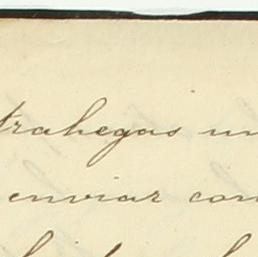 trahegas un
enviar con